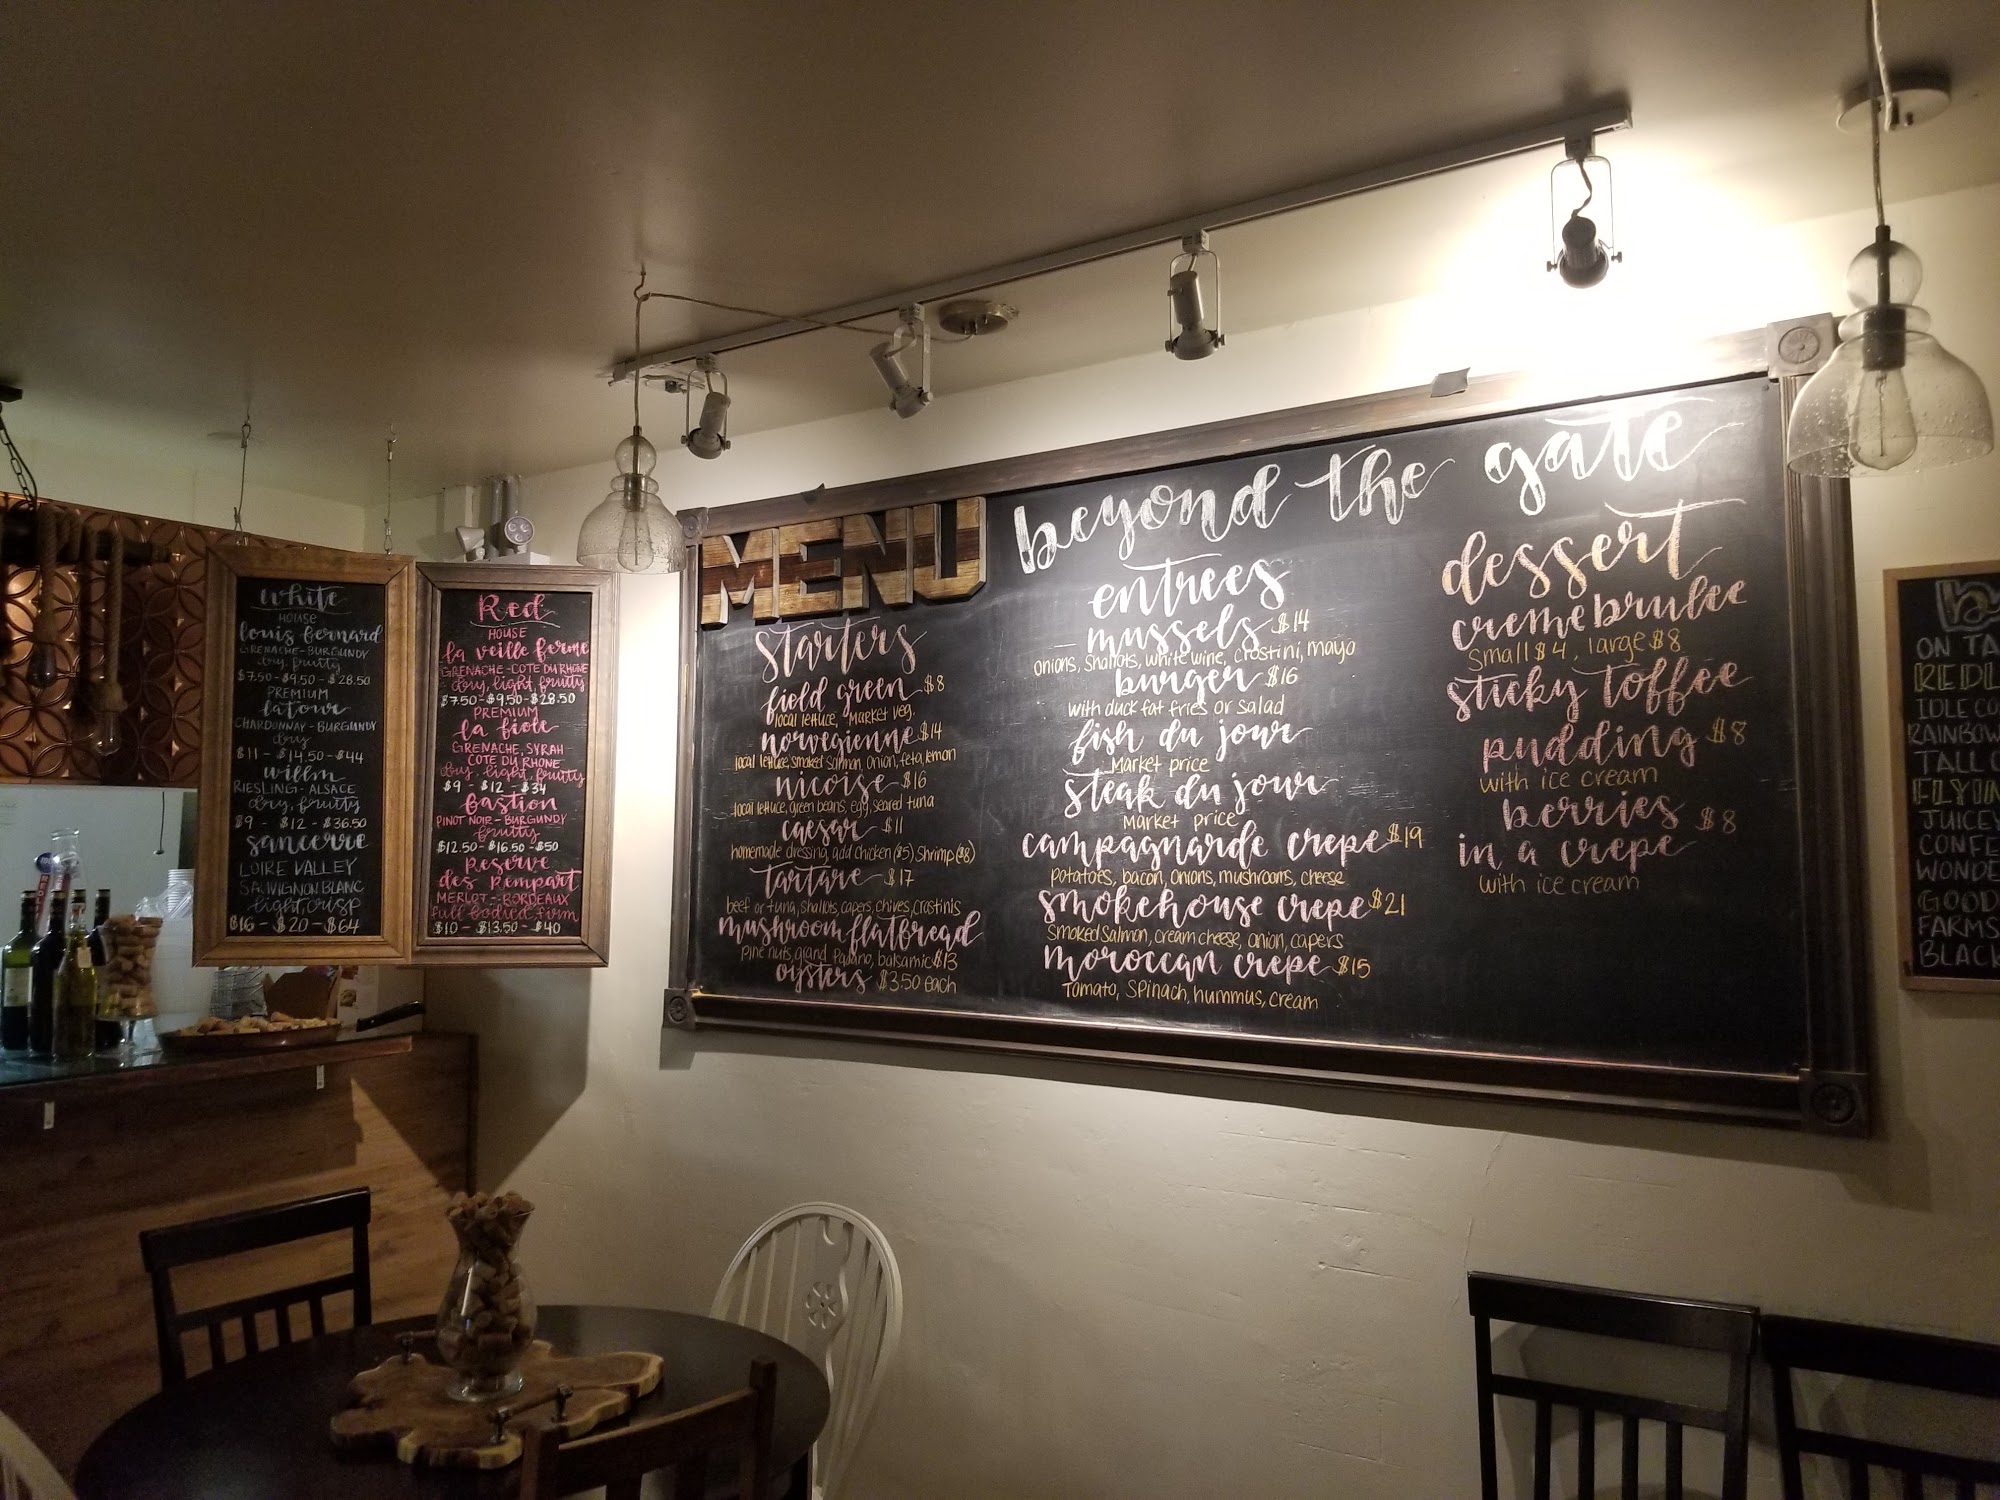 white
HOUSE
louis bernard
GRENACHE-BURGUNDY
dry, fruity
$7.50-$9.50-$28.50
PREMIUM
latour
CHARDONNAY-BURGUNDY
dry
$11 - $14.50 - $44
willm
RIESLING - ALSACE
dry, fruity
$9 - $12 - $36.50
sancerre
LOIRE VALLEY
SAUVIGNON BLANC
light, crisp
$16 - $20 - $64
Red
HOUSE
la veille ferme
GRENACHE-COTE DU RHONE
dry, light, fruity
$7.50-$9.50-$28.50
PREMIUM
la fiole
GRENACHE, SYRAH
COTE DU RHONE
dry, light, fruity
$9 - $12 - $34
bastion
PINOT NOIR - BURGUNDY
fruity
$12.50 - $16.50 - $50
reserve
des rempart
MERLOT - BORDEAUX
full bodied, firm
$10 - $13.50 - $40
MENU
beyond the gate
starters
field green $8
local lettuce, Market veg.
norvegienne $14
local lettuce, smoked salmon, onion, feta, lemon
nicoise $16
local lettuce, green beans, egg, seared tuna
caesar $11
homemade dressing, add chicken ($5) Shrimp ($8)
tartare $17
beef or tuna, shallots, capers, chives, crostinis
mushroom flatbread
pine nuts, grand Padano, balsamic $13
oysters $3.50 each
entrees
mussels $14
onions, shallots, white wine, crostini, mayo
burger $16
with duck fat fries or salad
fish du jour
Market price
steak du jour
Market price
campagnarde crepe $19
potatoes, bacon, onions, mushrooms, cheese
smokehouse crepe $21
Smoked salmon, cream cheese, onion, capers
moroccan crepe $15
Tomato, Spinach, hummus, cream
dessert
creme brulee
Small $4, large $8
sticky toffee
pudding $8
with ice cream
berries
in a crepe $8
with ice cream
ON TA
REDL
IDLE CO
RAINBOW
TALL
FLYIN
JUICEY
CONFE
WONDE
GOOD
FARMS
BLACK